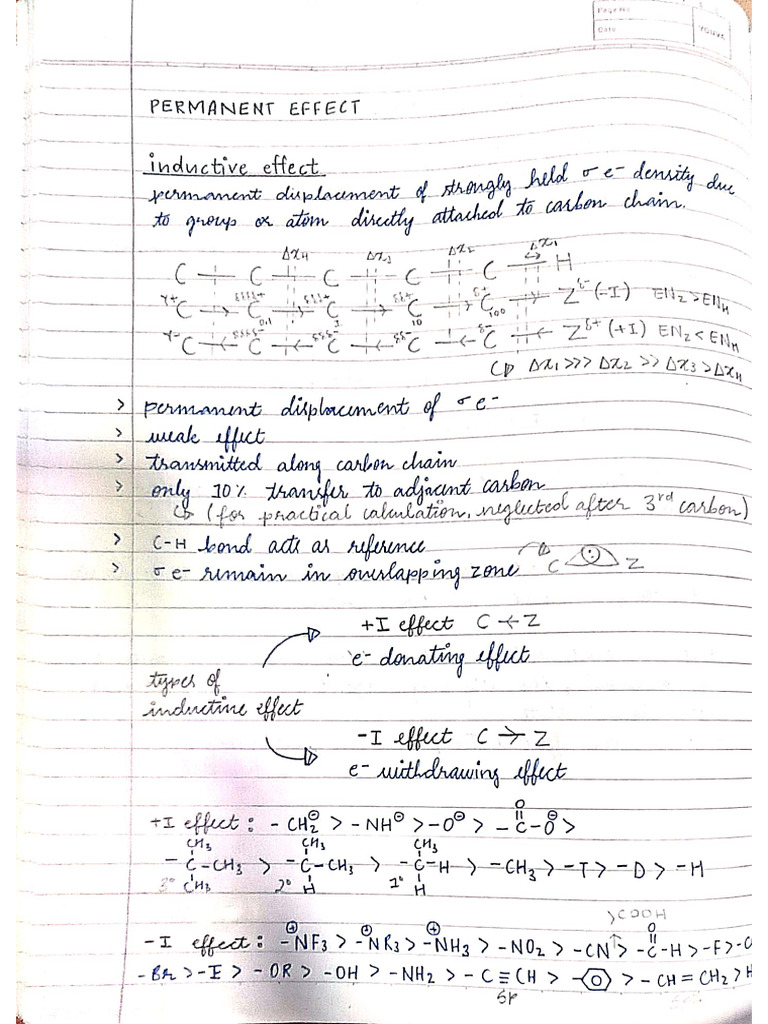 Page No.
Date
YOUVA
PERMANENT EFFECT
inductive effect
permanent displacement of strongly held σ e- density due
to group or atom directly attached to carbon chain.
Δx4 Δx3 Δx2 Δx1
C — C — C — C — C ↔ H
γ+C → δδδδ+C → δδδ+C → δδ+C → δ+C → Zδ- (-I) EN_Z > EN_H
0.1 1 10 100
γ-C ← δδδδ-C ← δδδ-C ← δδ-C ← δ-C ← Zδ+ (+I) EN_Z < EN_H
↳ Δx1 >>> Δx2 >> Δx3 > Δx4
> permanent displacement of σ e-
> weak effect
> transmitted along carbon chain
> only 10% transfer to adjacent carbon
↳ (for practical calculation, neglected after 3rd carbon)
> C-H bond acts as reference
> σ e- remain in overlapping zone C Z
+I effect C ← Z
e- donating effect
types of
inductine effect
-I effect C → Z
e- withdrawing effect
O
+I effect : - CH2⊖ > - NH⊖ > -O⊖ > - C - O⊖ >
CH3 CH3 CH3
- C - CH3 > - C - CH3 > - C - H > - CH3 > - T > - D > - H
3° CH3 2° H 1° H
> COOH
O
-I effect : - ⊕NF3 > - ⊕NR3 > - ⊕NH3 > - NO2 > - CN ↑ > - C - H > - F > - C
- Br > - I > - OR > - OH > - NH2 > - C ≡ CH > - ⌬ > - CH = CH2 > H
sp